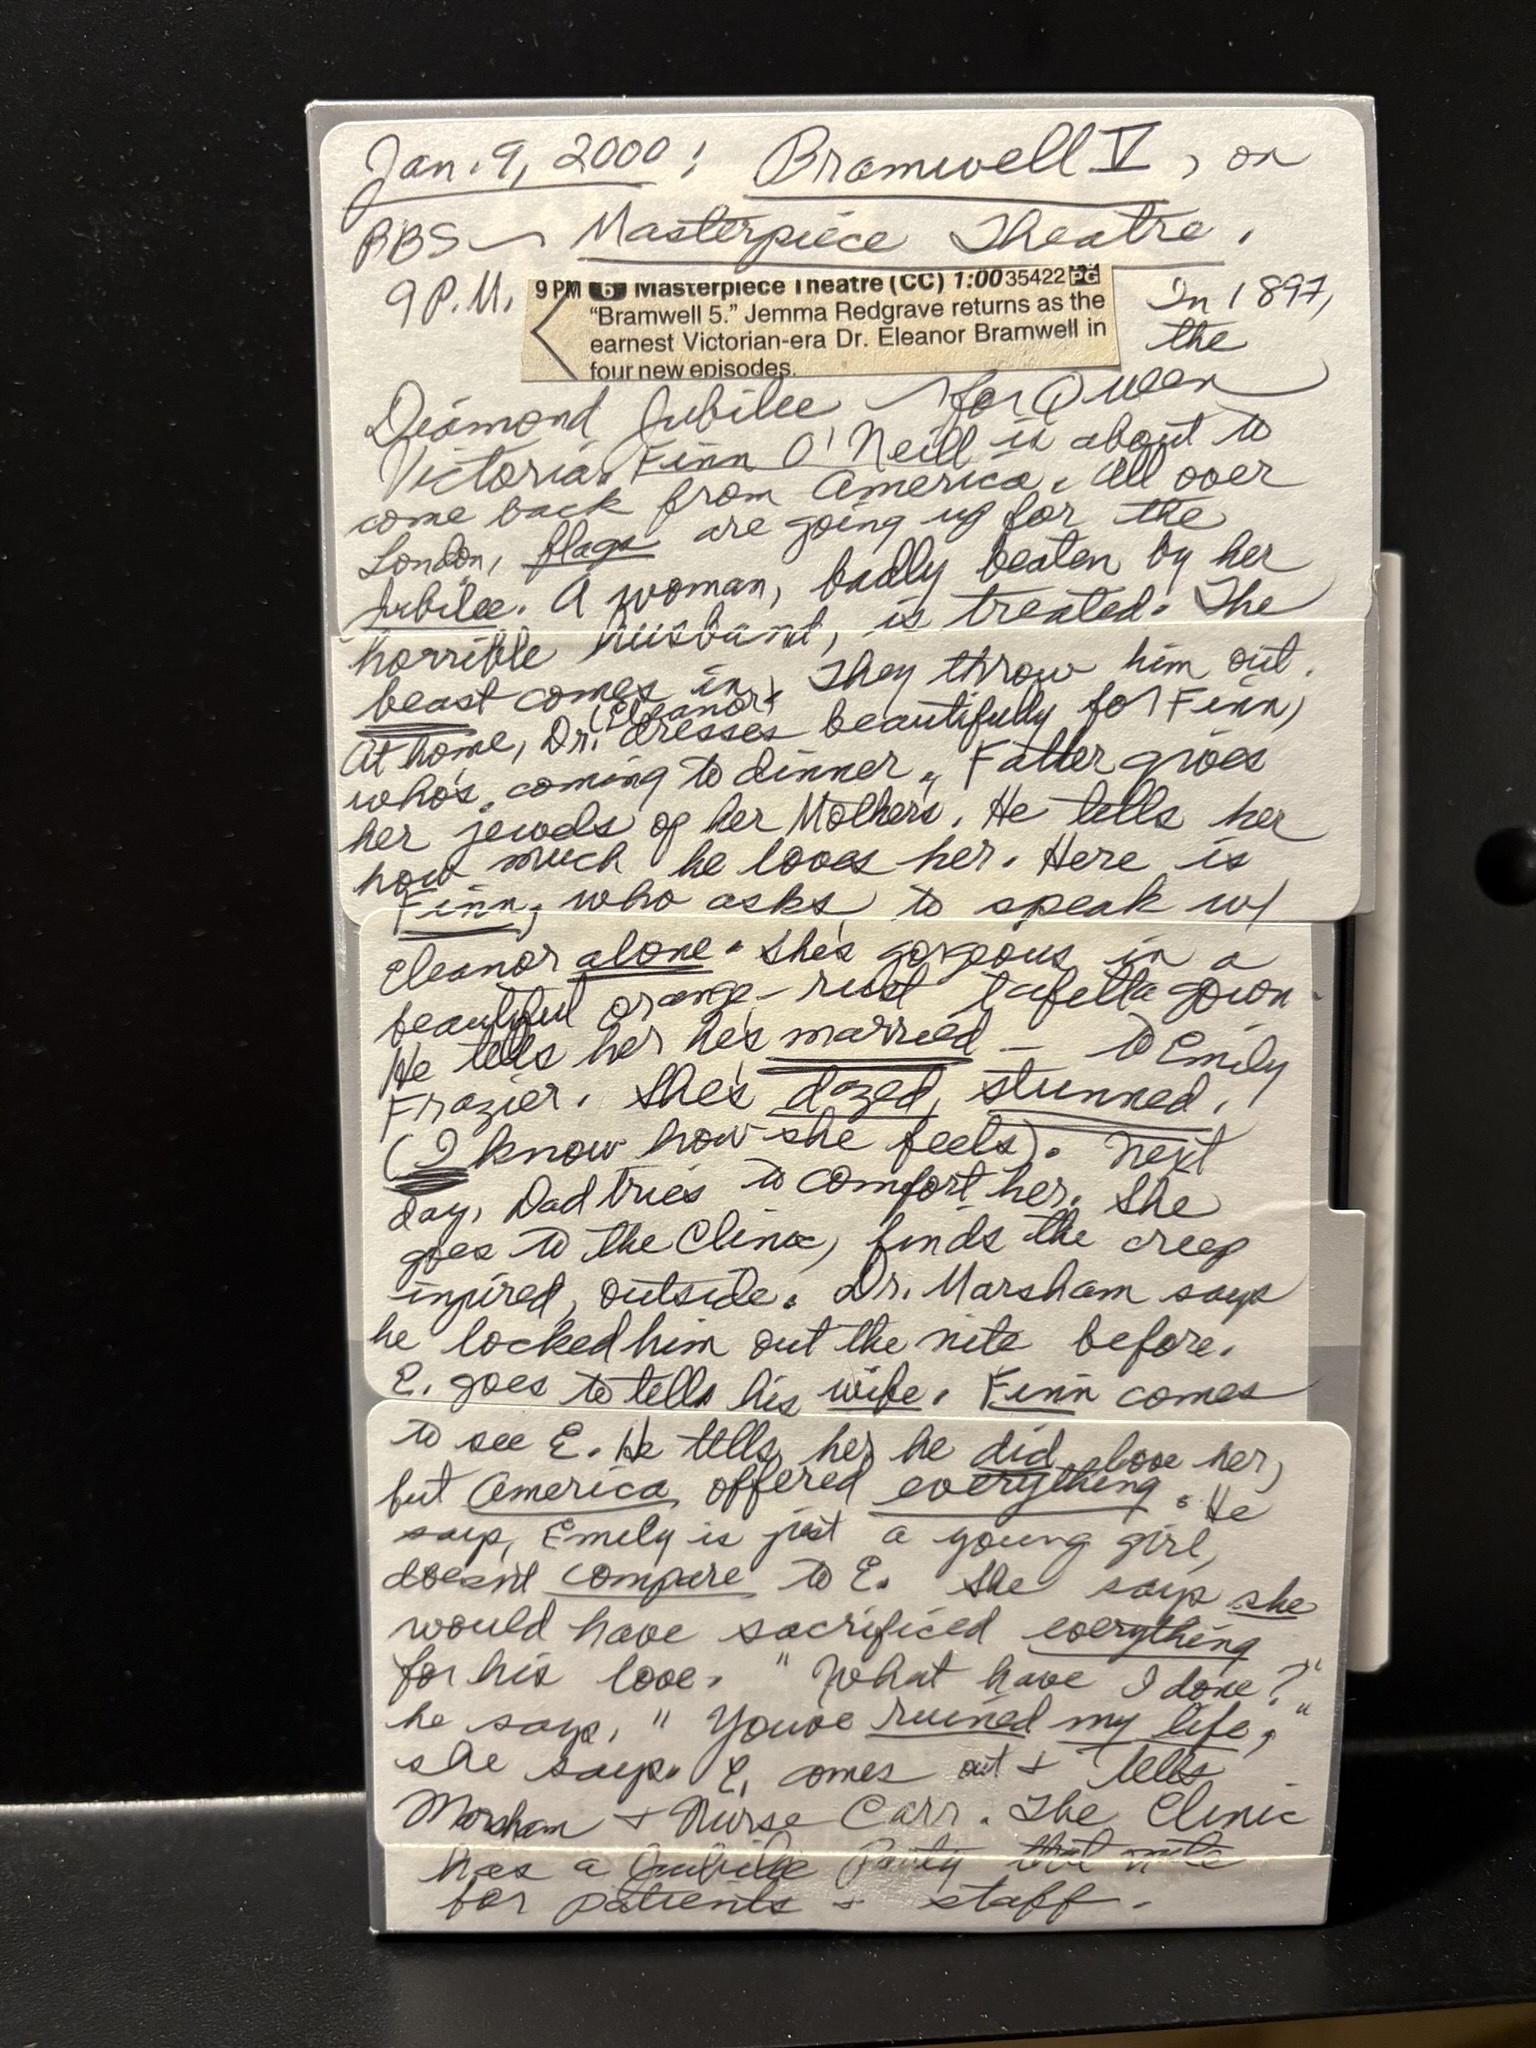 Jan. 9, 2000: Bramwell V, on
PBS — Masterpiece Theatre.
9 P.M.
9 PM 6 Masterpiece Theatre (CC) 1:00 35422 PG
"Bramwell 5." Jemma Redgrave returns as the
earnest Victorian-era Dr. Eleanor Bramwell in
four new episodes.
In 1897,
the
Diamond Jubilee — for Queen
Victoria. Finn O'Neill is about to
come back from America. All over
London, flags are going up for the
Jubilee. A woman, badly beaten by her
horrible husband, is treated. The
beast comes in. They throw him out.
At home, Dr. (Eleanor) dresses beautifully for Finn,
who's coming to dinner. Father gives
her jewels of her Mother's. He tells her
how much he loves her. Here is
Finn, who asks to speak w/
Eleanor alone. She's gorgeous in a
beautiful orange-rust taffetta gown.
He tells her he's married — to Emily
Frazier. She's dazed, stunned.
(I know how she feels). Next
day, Dad tries to comfort her. She
goes to the Clinic, finds the creep
injured, outside. Dr. Marsham says
he locked him out the nite before.
E. goes to tells his wife. Finn comes
to see E. He tells her he did love her,
but America offered everything. He
says, Emily is just a young girl,
doesn't compare to E. She says she
would have sacrificed everything
for his love. "What have I done?"
he says. "You've ruined my life,"
she says. E. comes out + tells
Marsham + Nurse Carr. The Clinic
has a Jubilee Party that nite
for patients + staff.